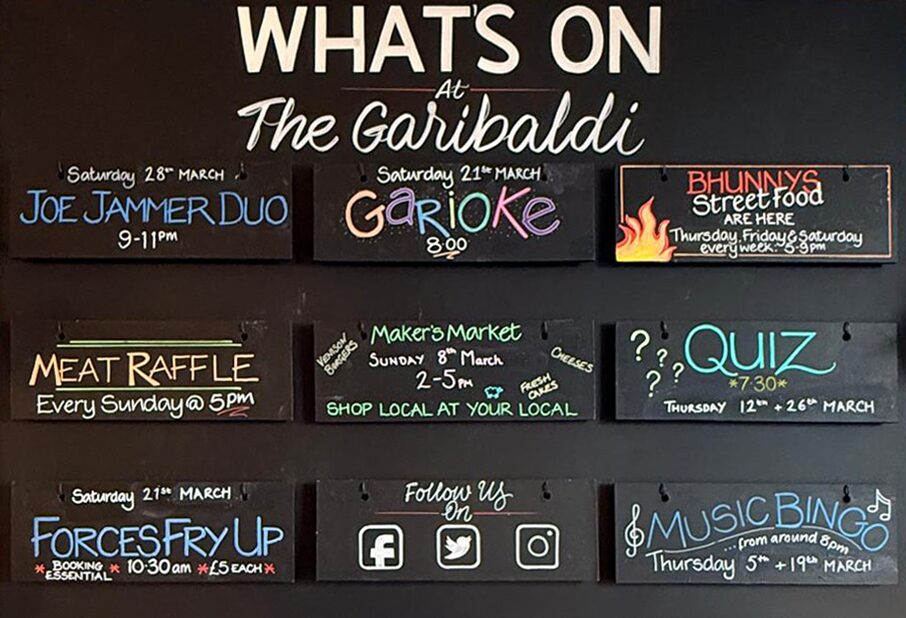 WHAT'S ON
At
The Garibaldi
Saturday 28th MARCH
JOE JAMMER DUO
9-11pm
Saturday 21st MARCH
GARIOKE
8:00
BHUNNYS
Street Food
ARE HERE
Thursday, Friday & Saturday
every week. 5-9pm
MEAT RAFFLE
Every Sunday @ 5pm
Maker's Market
SUNDAY 8th March
2-5pm
VENISON
BURGERS
CHEESES
FRESH
CAKES
SHOP LOCAL AT YOUR LOCAL
? ? ? ?
QUIZ
*7:30*
THURSDAY 12th + 26th MARCH
Saturday 21st MARCH
FORCES FRY UP
* BOOKING
ESSENTIAL * 10:30am *£5 EACH*
Follow Us
On
MUSIC BINGO
...from around 8pm
Thursday 5th + 19th MARCH